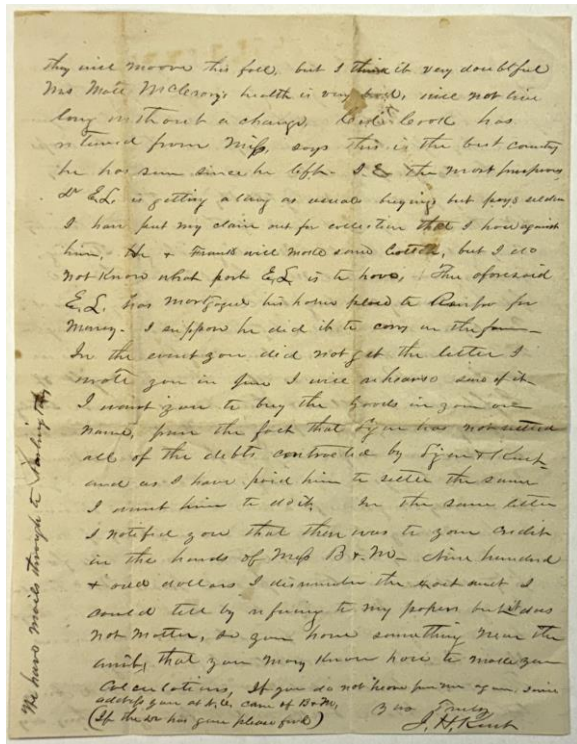 they will moove this fall, but I think it very doubtful
Mrs Matt McLeroy's health is very bad, will not live
long without a change, Cook has
returned from Miss, says this is the best country
he has seen since he left. & the most prosperous
Dr E.L. is getting along as usual buying but pays seldom
I have put my claim out for collection that I have against
him, He & will make some Cotton, but I do
not Know what part E.L. is to have, The aforesaid
E.L. has mortgaged his home place to for
Money. I suppose he did it to carry on the farm
In the event you did not get the letter I
wrote you in June I will rehearse some of it
I want you to buy the Goods in your own
name, from the fact that has not settled
all of the debts contracted by &
and as I have paid him to settle the same
I want him to do it. In the same letter
I notified you that there was to your credit
in the hands of Mess B & M - Nine hundred
& odd dollars I disremember the I
could tell by refering to my papers but it does
not matter, so you have something near the
amt, that you may Know how to make your
Calculations, If you do not hear from me again, I will
address you at care of B & M.
(If the Dr has gone please )
Yours Truly
J. H.
We have mails through to